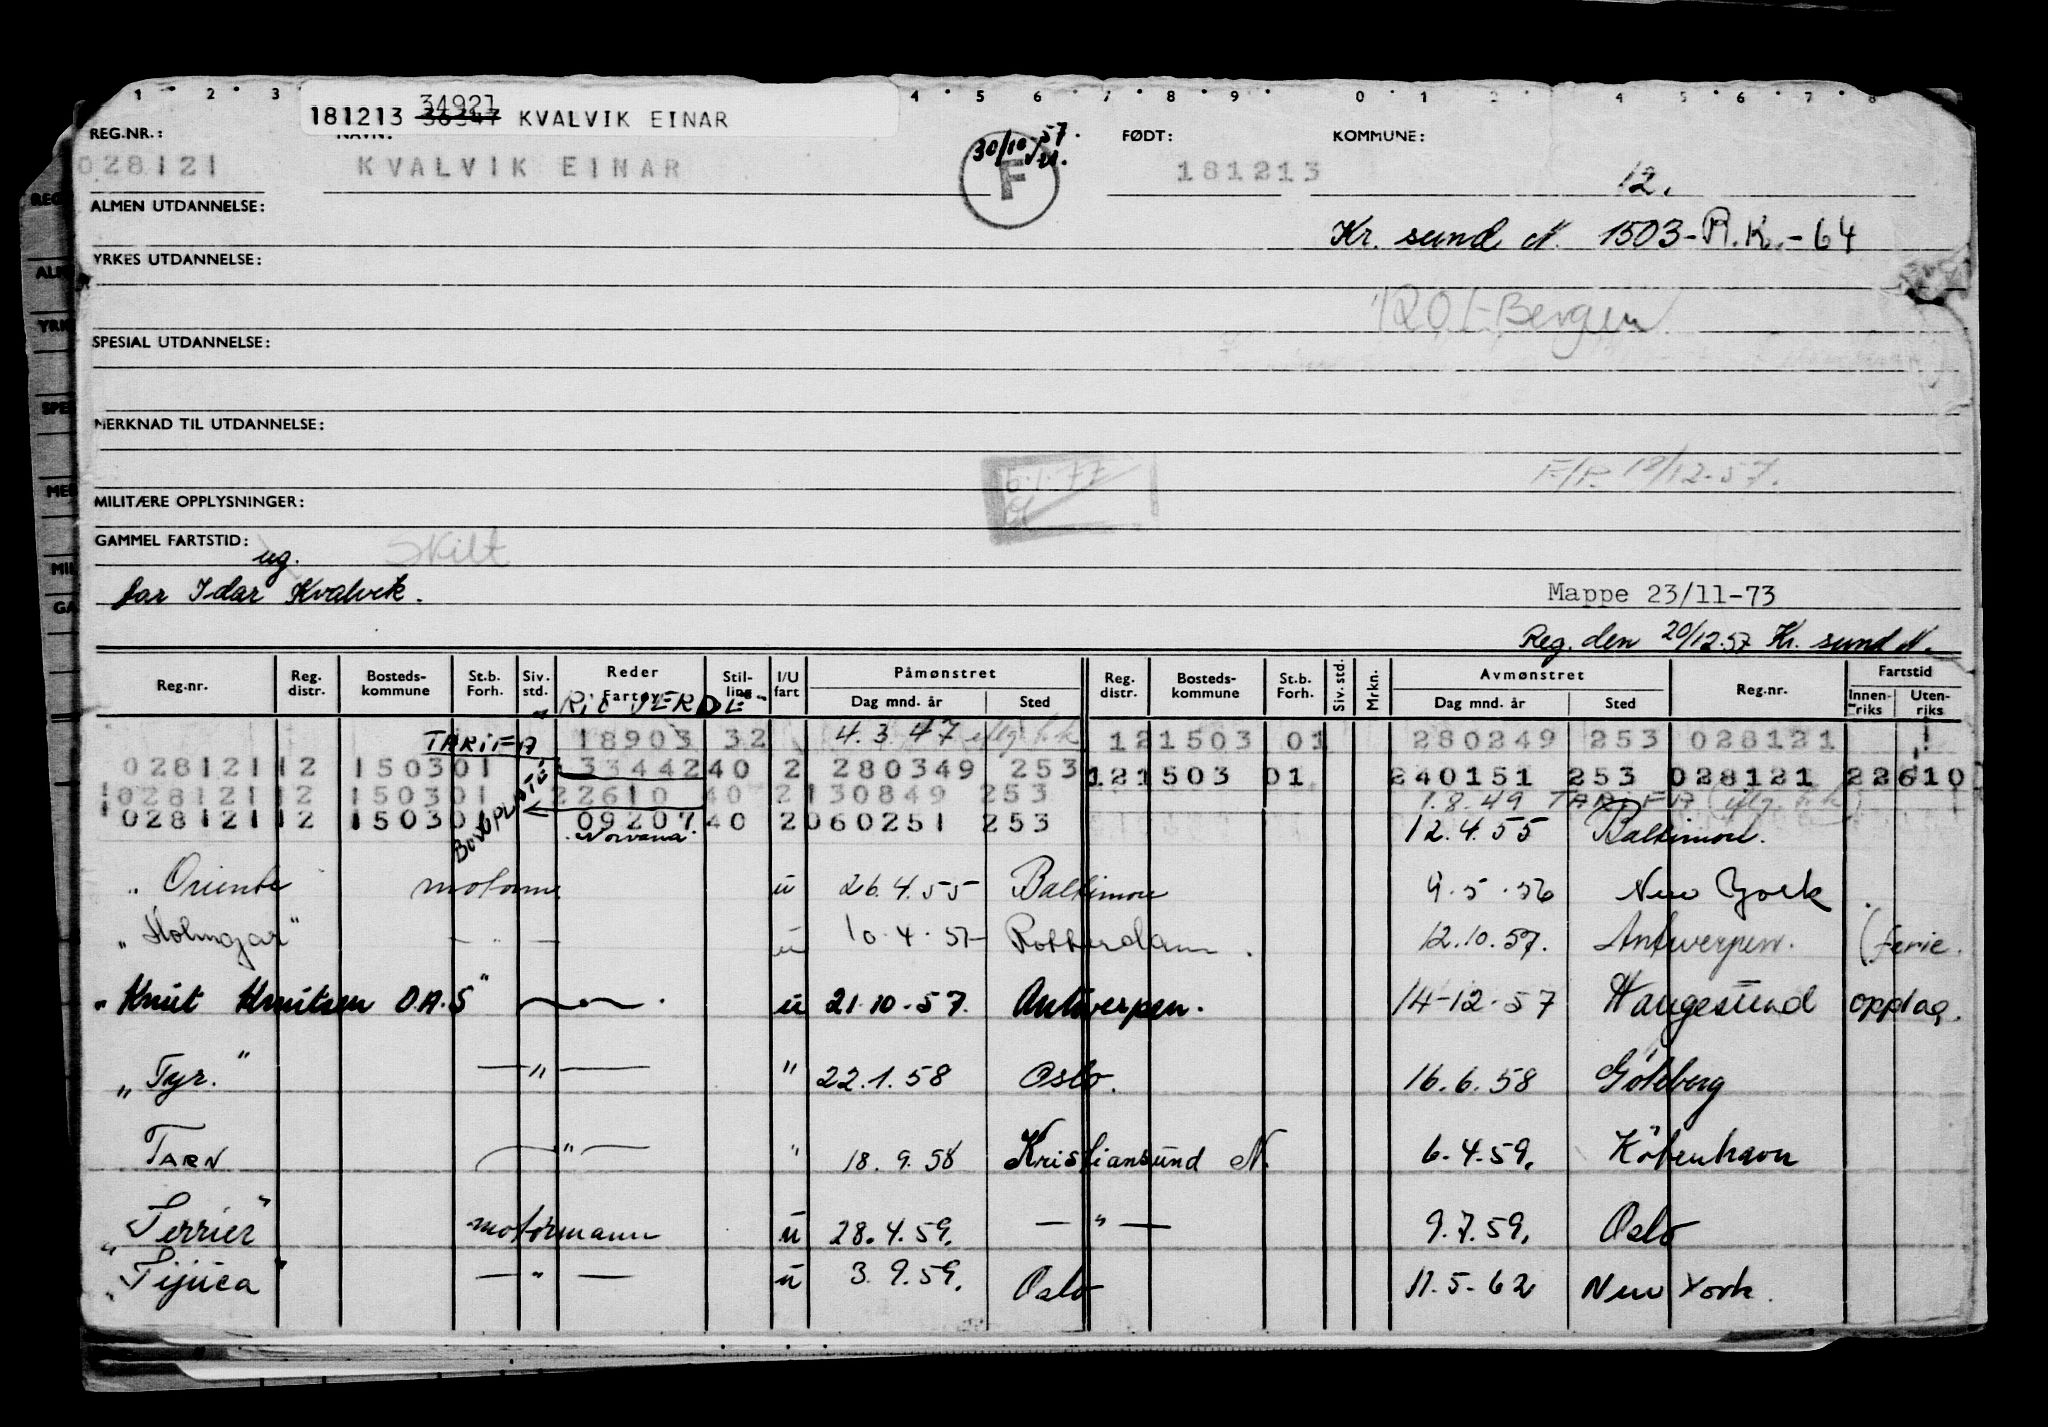 1 · 2 · 3 4 · 5 · 6 · 7 · 8 · 9 · 0 · 1 · 2 · 4 · 5 · 6 · 7 · 8
34921
181213 36347 KVALVIK EINAR
REG.NR.: NAVN: FØDT: KOMMUNE:
028121 KVALVIK EINAR 30/10-57. F 181213 12.
ALMEN UTDANNELSE: Kr. sund N. 1503-R.K.-64
YRKES UTDANNELSE:
1201-Bergen
SPESIAL UTDANNELSE:
MERKNAD TIL UTDANNELSE:
6.1.77 F/R 19/12-57.
MILITÆRE OPPLYSNINGER:
GAMMEL FARTSTID: ug. Skilt
far Idar Kvalvik. Mappe 23/11-73
Reg. den 20/12-57 Kr. sund N.
Reg.nr. Reg. distr. Bosteds-kommune St.b. Forh. Siv. std. Reder Fartøy Stil-ling I/U fart Påmønstret Reg. distr. Bosteds-kommune St.b. Forh. Siv. std. Mrkn. Avmønstret Reg.nr. Fartstid
Dag mnd. år Sted Dag mnd. år Sted Innen-riks Uten-riks
RIO VERDE
TARIFA 18903 32 4.3.47 iflg. h.k 121503 01 280249 253 028121
028121 12 150301 33442 40 2 280349 253 121503 01 240151 253 028121 22610
028121 12 150301 22610 40 2 130849 253 1.8.49 TARIFA (iflg. h.k)
028121 12 15030 09207 40 2 060251 253 12.4.55 Baltimore.
"Norvana"
"Oriente motorm. u 26.4.55 Baltimore 9.5.56 New York
"Holmgar" — " — u 10.4.57 Rotterdam. 12.10.57. Antwerpen. (ferie.
"Knut Knutsen O.A.S" u 21.10.57. Antwerpen. 14-12-57 Haugesund oppdag.
"Tyr." — " — " 22.1.58 Oslo. 16.6.58 Göteborg
TARN — " — " 18.9.58 Kristiansund N. 6.4.59. København
"Terrier" motormann u 28.4.59. — " — 9.7.59. Oslo
"Tijuca" — " — u 3.9.59. Oslo 11.5.62 New York.